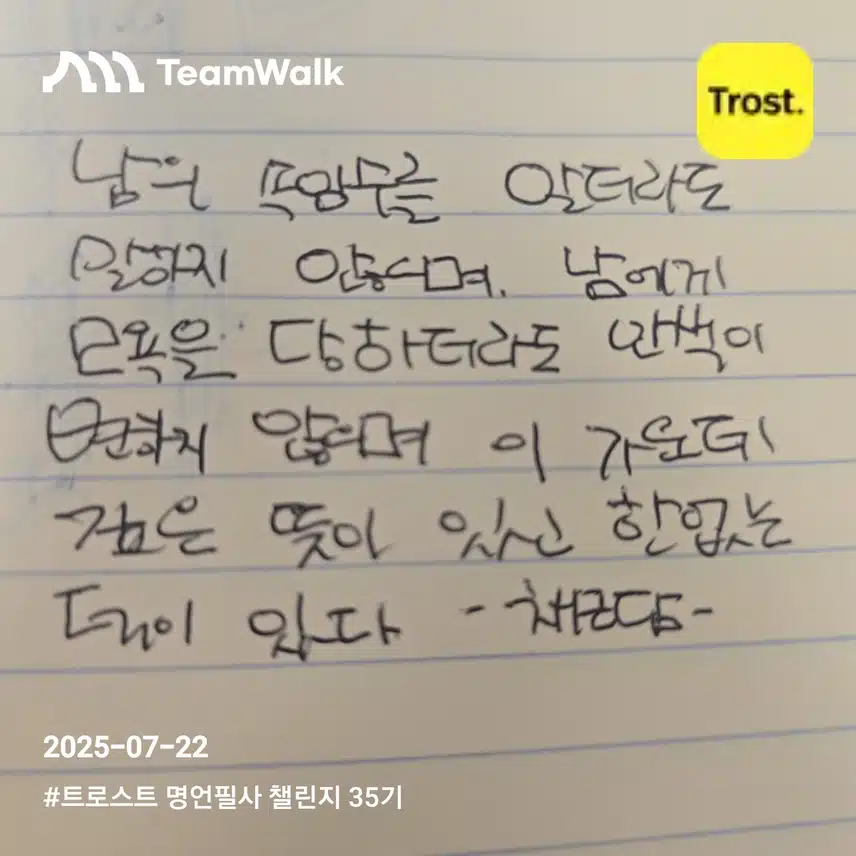 TeamWalk
Trost.
남의 속임수를 알더라도
말하지 않으며. 남에게
모욕을 당하더라도 안색이
변하지 않으며 이 가운데
깊은 뜻이 있고 한없는
덕이 있다 -채근담-
2025-07-22
#트로스트 명언필사 챌린지 35기